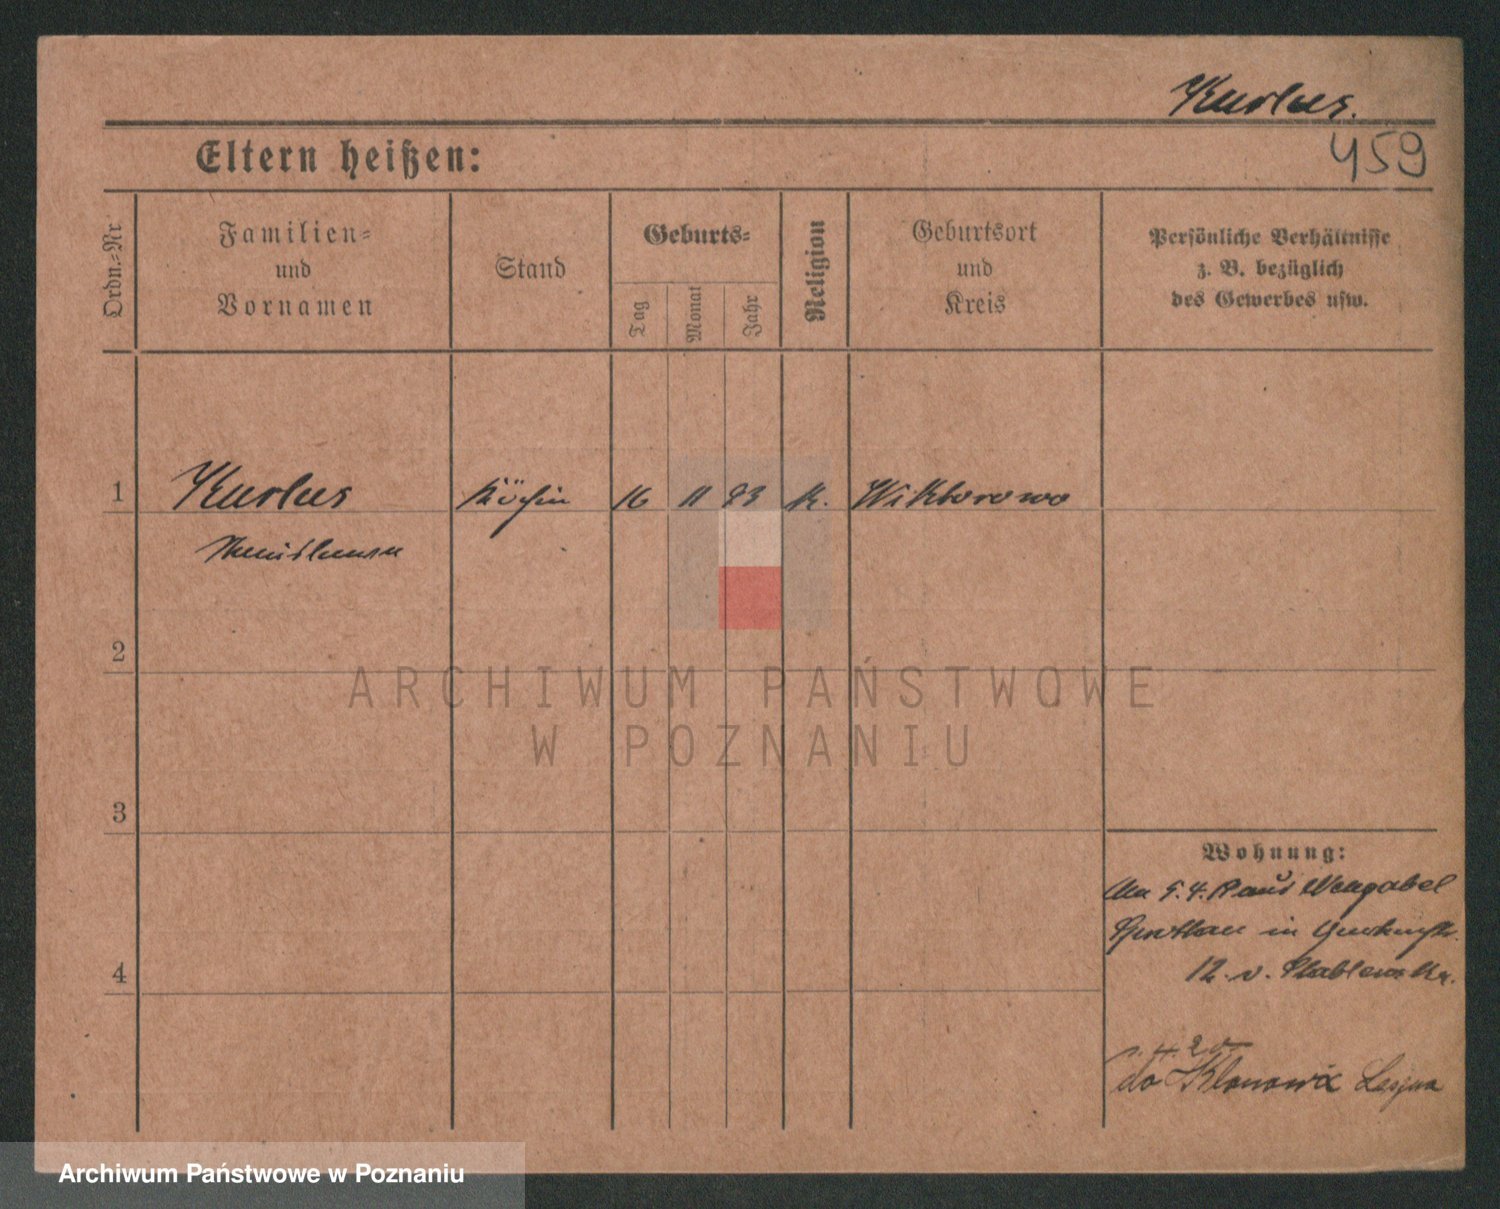 Kurlus.
459
Eltern heißen:
Ordn.-Nr.
Familien-
und
Vornamen
Stand
Geburts-
Tag
Monat
Jahr
Religion
Geburtsort
und
Kreis
Persönliche Verhältnisse
z. B. bezüglich
des Gewerbes usw.
1
Kurlus
Köchin
16
11
93
K.
Wiktorowo
2
3
4
Wohnung:
12. v.
Klonowic Leszna
ARCHIWUM PAŃSTWOWE
W POZNANIU
Archiwum Państwowe w Poznaniu